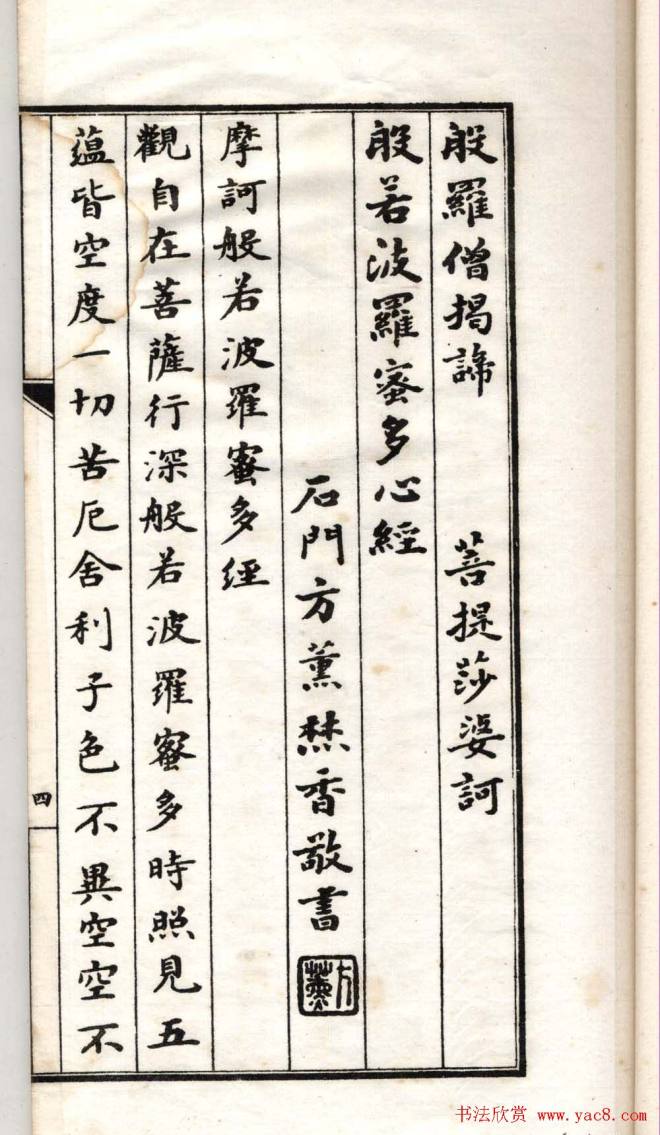 般羅僧揭諦 菩提莎婆訶
般若波羅蜜多心經
石門方薰焚香敬書
方薰
摩訶般若波羅蜜多經
觀自在菩薩行深般若波羅蜜多時照見五
蘊皆空度一切苦厄舍利子色不異空空不
四
书法欣赏 www.yac8.com